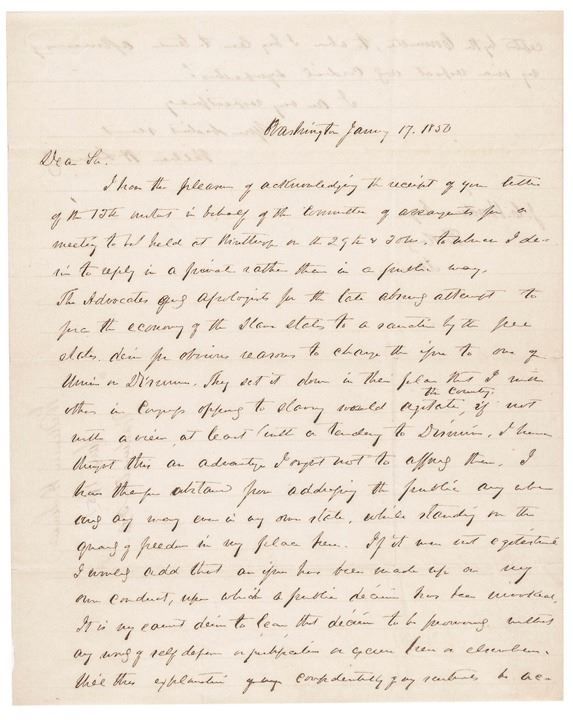 Washington Jany 17. 1850
Dear Sir.
I have the pleasure of acknowledging the receipt of your letter
of the 13th instant in behalf of the Committee of arrangements for a
meeting to be held at on the 29th & 30th. to whom I de-
sire to reply in a private rather than in a public way.
The Advocates and apologists for the late attempt to
force the economy of the Slave states to a sanction by the free
states. desire for obvious reasons to change the issue to one of
Union or Disunion. They set it down in their plan that I with
others in Congress opposing to slavery would agitate the country, if not
with a view, at least with a tendency to Disunion. I have
thought this an advantage I ought not to afford them. I
have therefore abstained from addressing the public any where
and any way even in my own state, while standing on the
guard of freedom in my place here. If it were not egotistical
I would add that an issue has been made up on my
own conduct, upon which a public decision has been invoked.
It is my earnest desire to leave that decision to be pronounced without
any word of self defense or publication or here or elsewhere.
this explanation confidentially my sentiments to be ac-